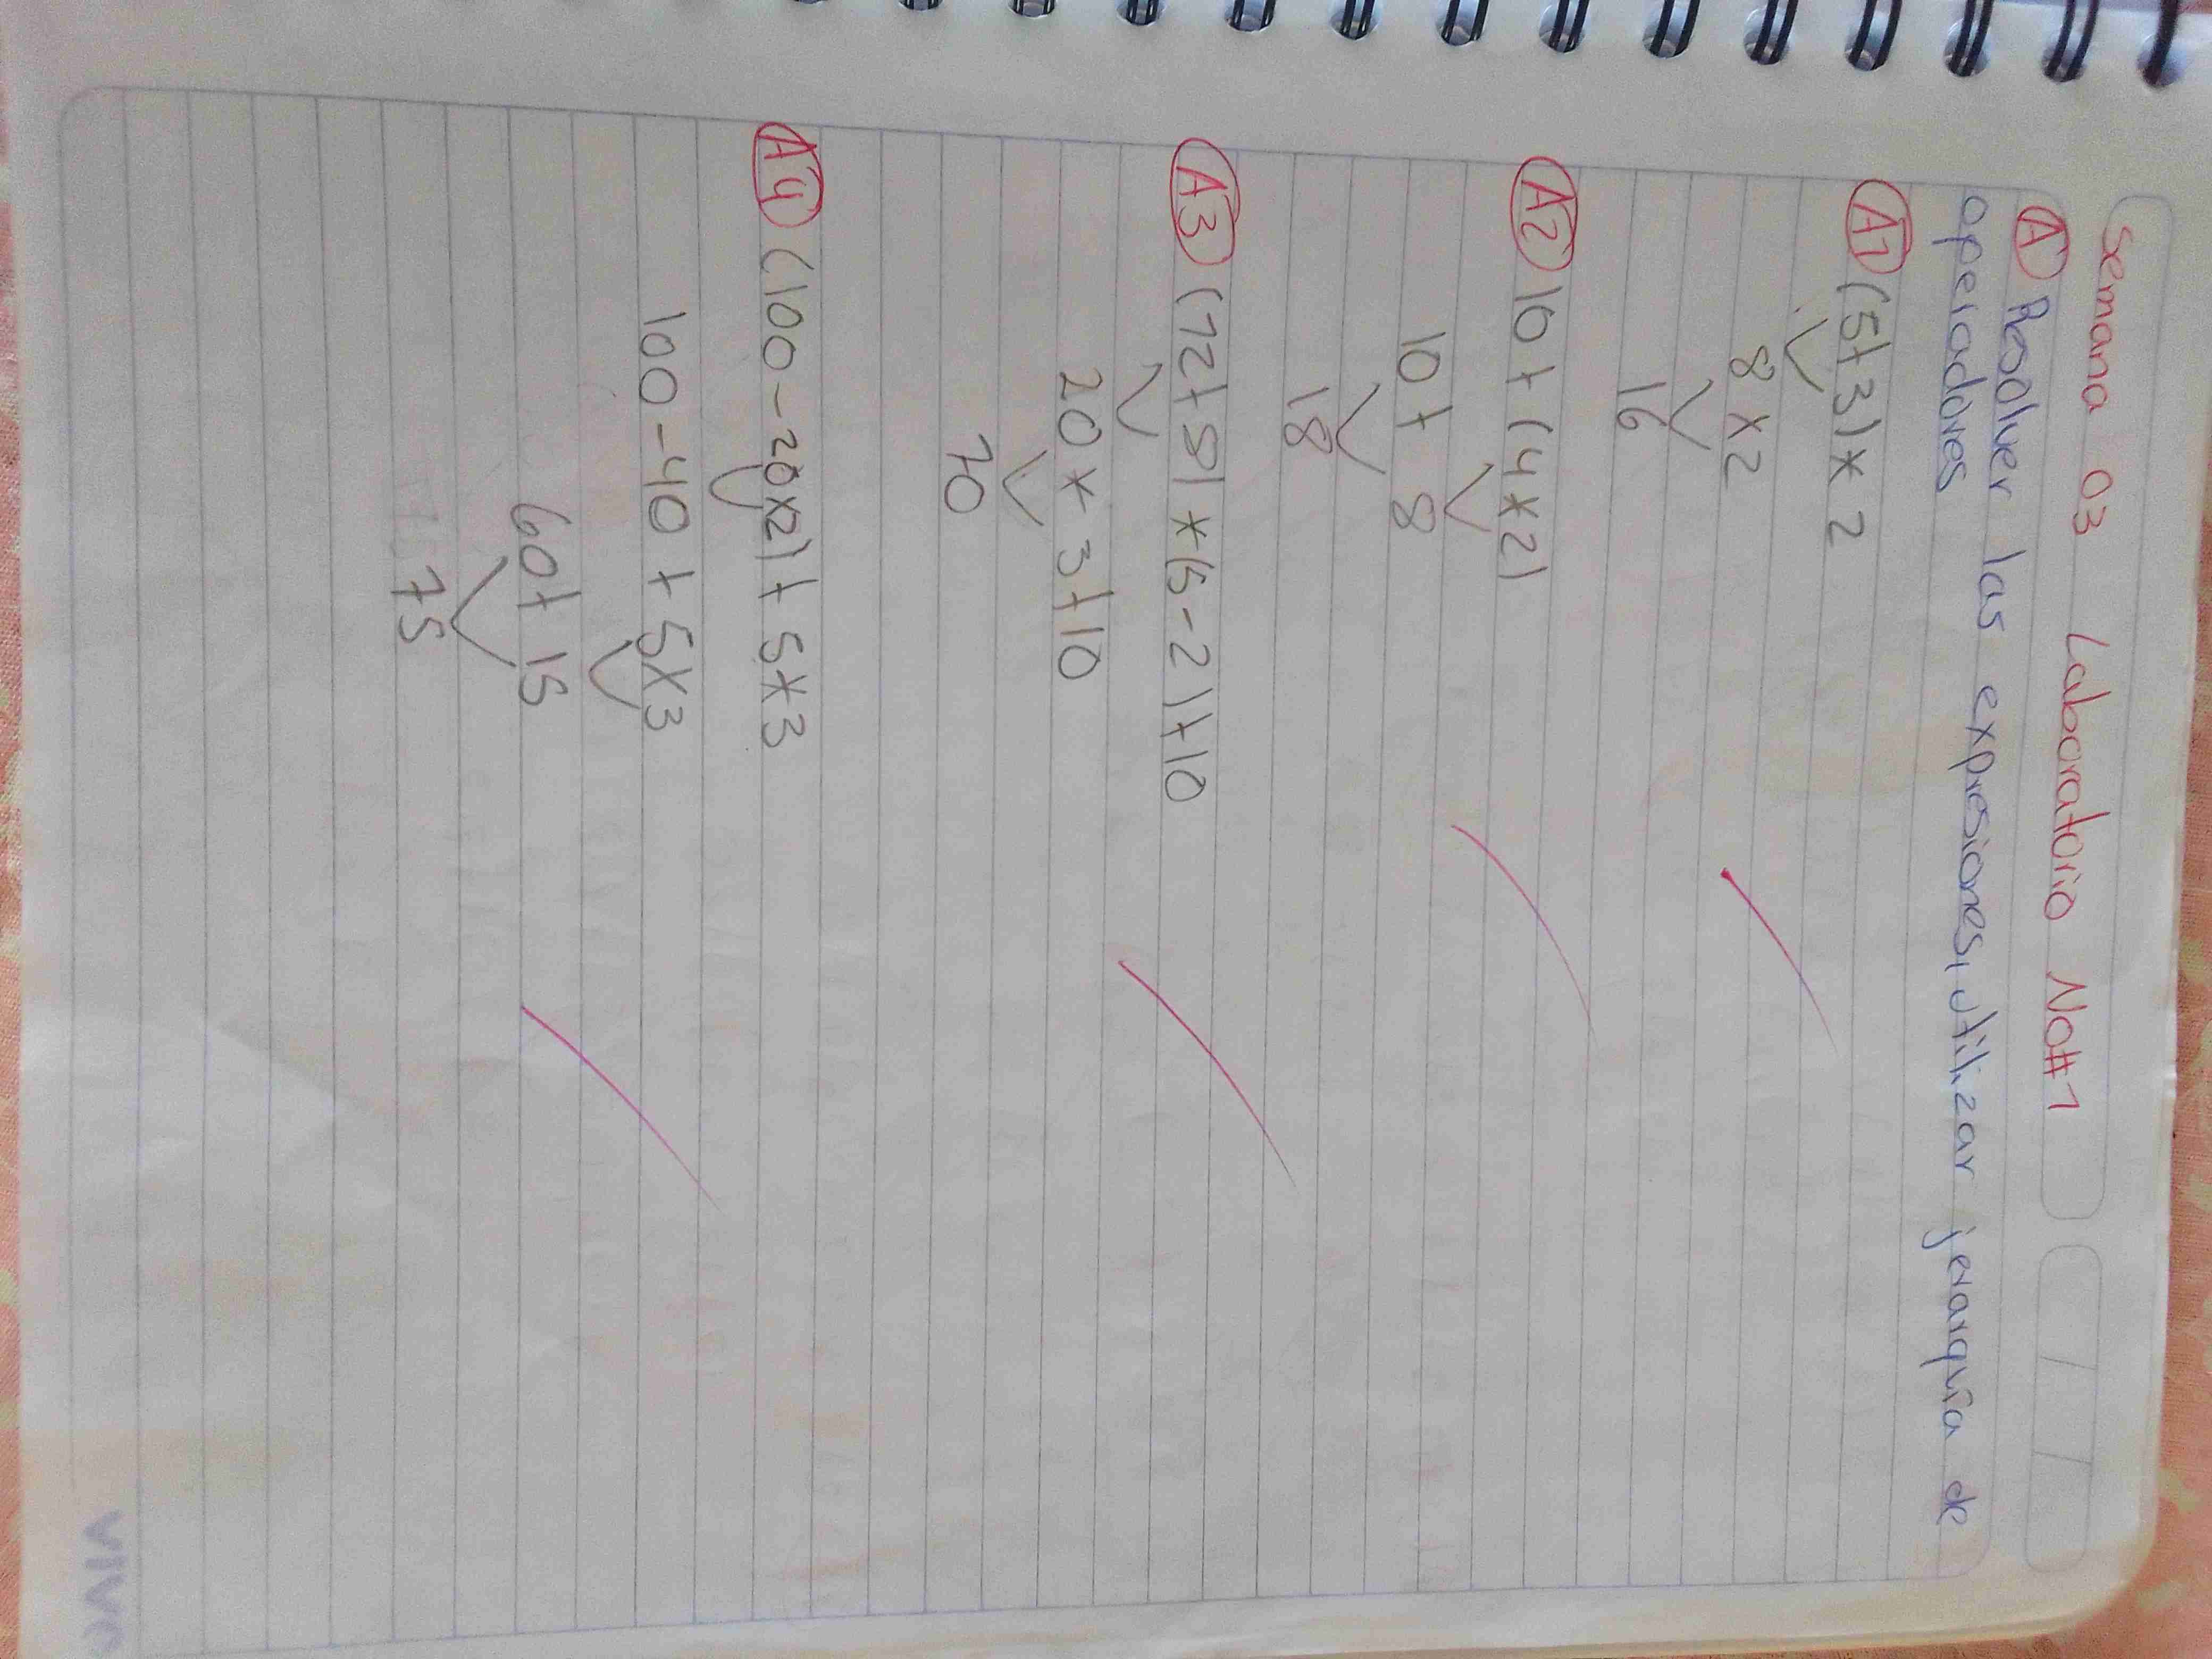 Semana 03 Laboratorio No#1
A Resolver las expresiones, utilizar jerarquía de
operadores
A1 (5+3)*2
8x2
16
A2 10+(4*2)
10+8
18
A3 (12+8)*(5-2)+10
20*3+10
70
A4 (100-20x2)+5*3
100-40+5x3
60+15
75
VIVO